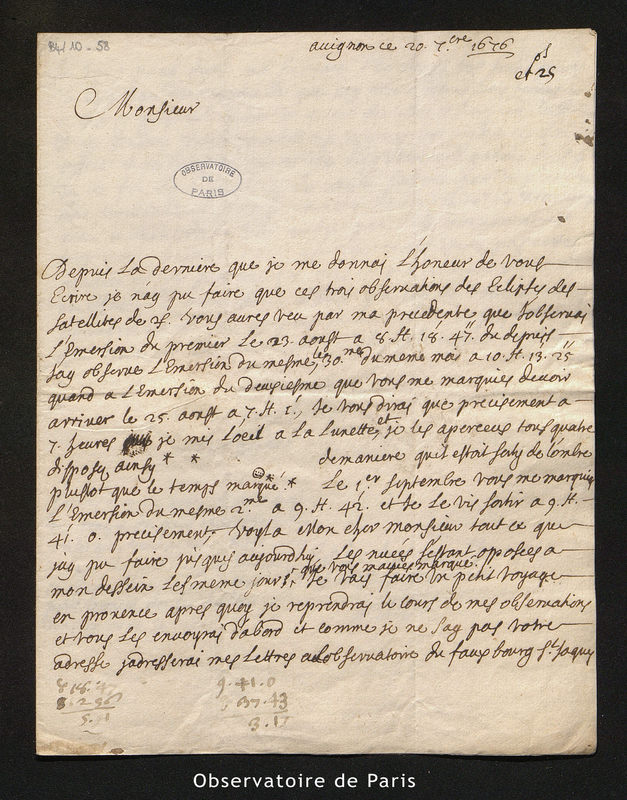 B4/10-58
avignon ce 20. 7.bre 1676
et 25
Monsieur
OBSERVATOIRE
DE
PARIS
Depuis La derniere que je me donnai L'honeur de vous
Ecrire je n'ay pu faire que ces trois observations des Eclipses des
satellites de ♃. vous aures veu par ma precedente que j'observai
L'Emersion du premier Le 23. aoust a 8. H. 18. 47". du depuis
Jay observé L'Emersion du mesme, le 30.me du meme mois a 10. H. 13. 25"
quand a L'Emersion du deusiesme que vous me marquies devoir
arriver le 25. aoust a 7. H. 1'., Je vous dirai que precisement a
7. heures je mis L'oeil a La Lunette, et je les aperceus tous quatre
disposes ainsy * * demaniere qu'il estoit sorty de l'ombre
plustot que le temps marqué. * Le 1.er septembre vous me marquies
L'Emersion du mesme 2.me a 9. H. 42. et je Le vis sortir a 9. H.
41. 0. precisement. voyla Mon cher monsieur tout ce que
jay pu faire jusques aujourdhuy. Les nuées s'estant opposées a
mon dessein Les meme jours que vous mavies marqué. Je vais faire un petit voyage
en provence apres quoy je reprendrai le cours de mes observations
et vous Les envoyrai d'abord et comme je ne say pas votre
adresse j'adresserai mes Lettres a L'observatoire du faux bourg St. Jaques
9.41.0
37.43
3.17
Observatoire de Paris